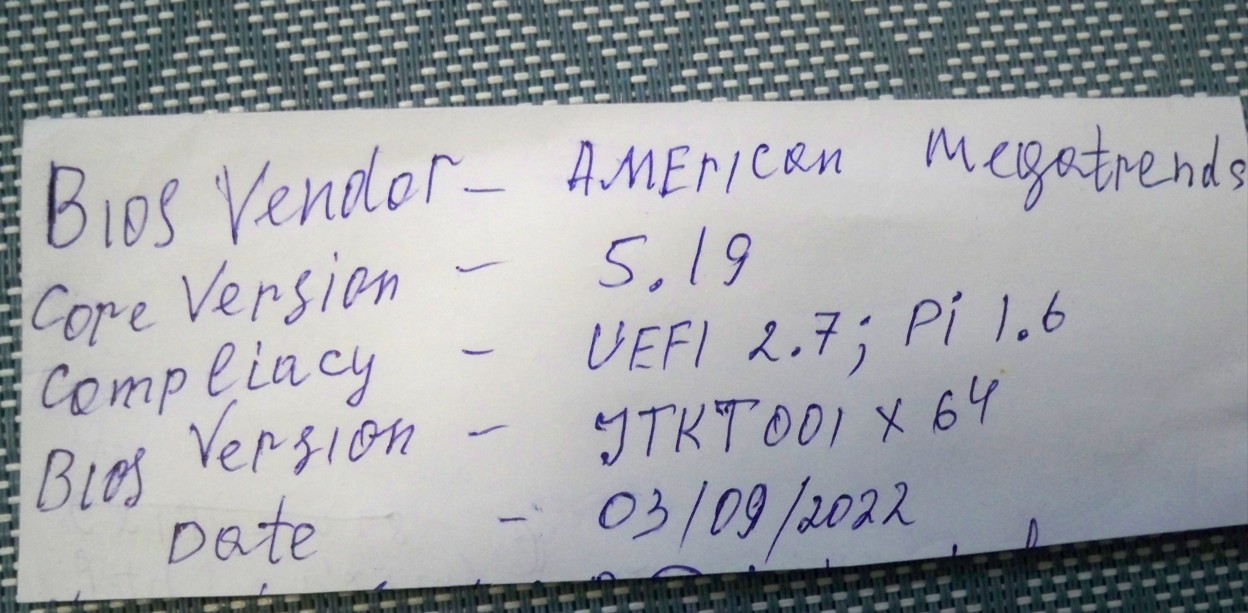 Bios Vendor - AMErican Megatrends
Core Version - 5.19
Compliacy - UEFI 2.7; Pi 1.6
Bios Version - JTKT001 x 64
Date - 03/09/2022